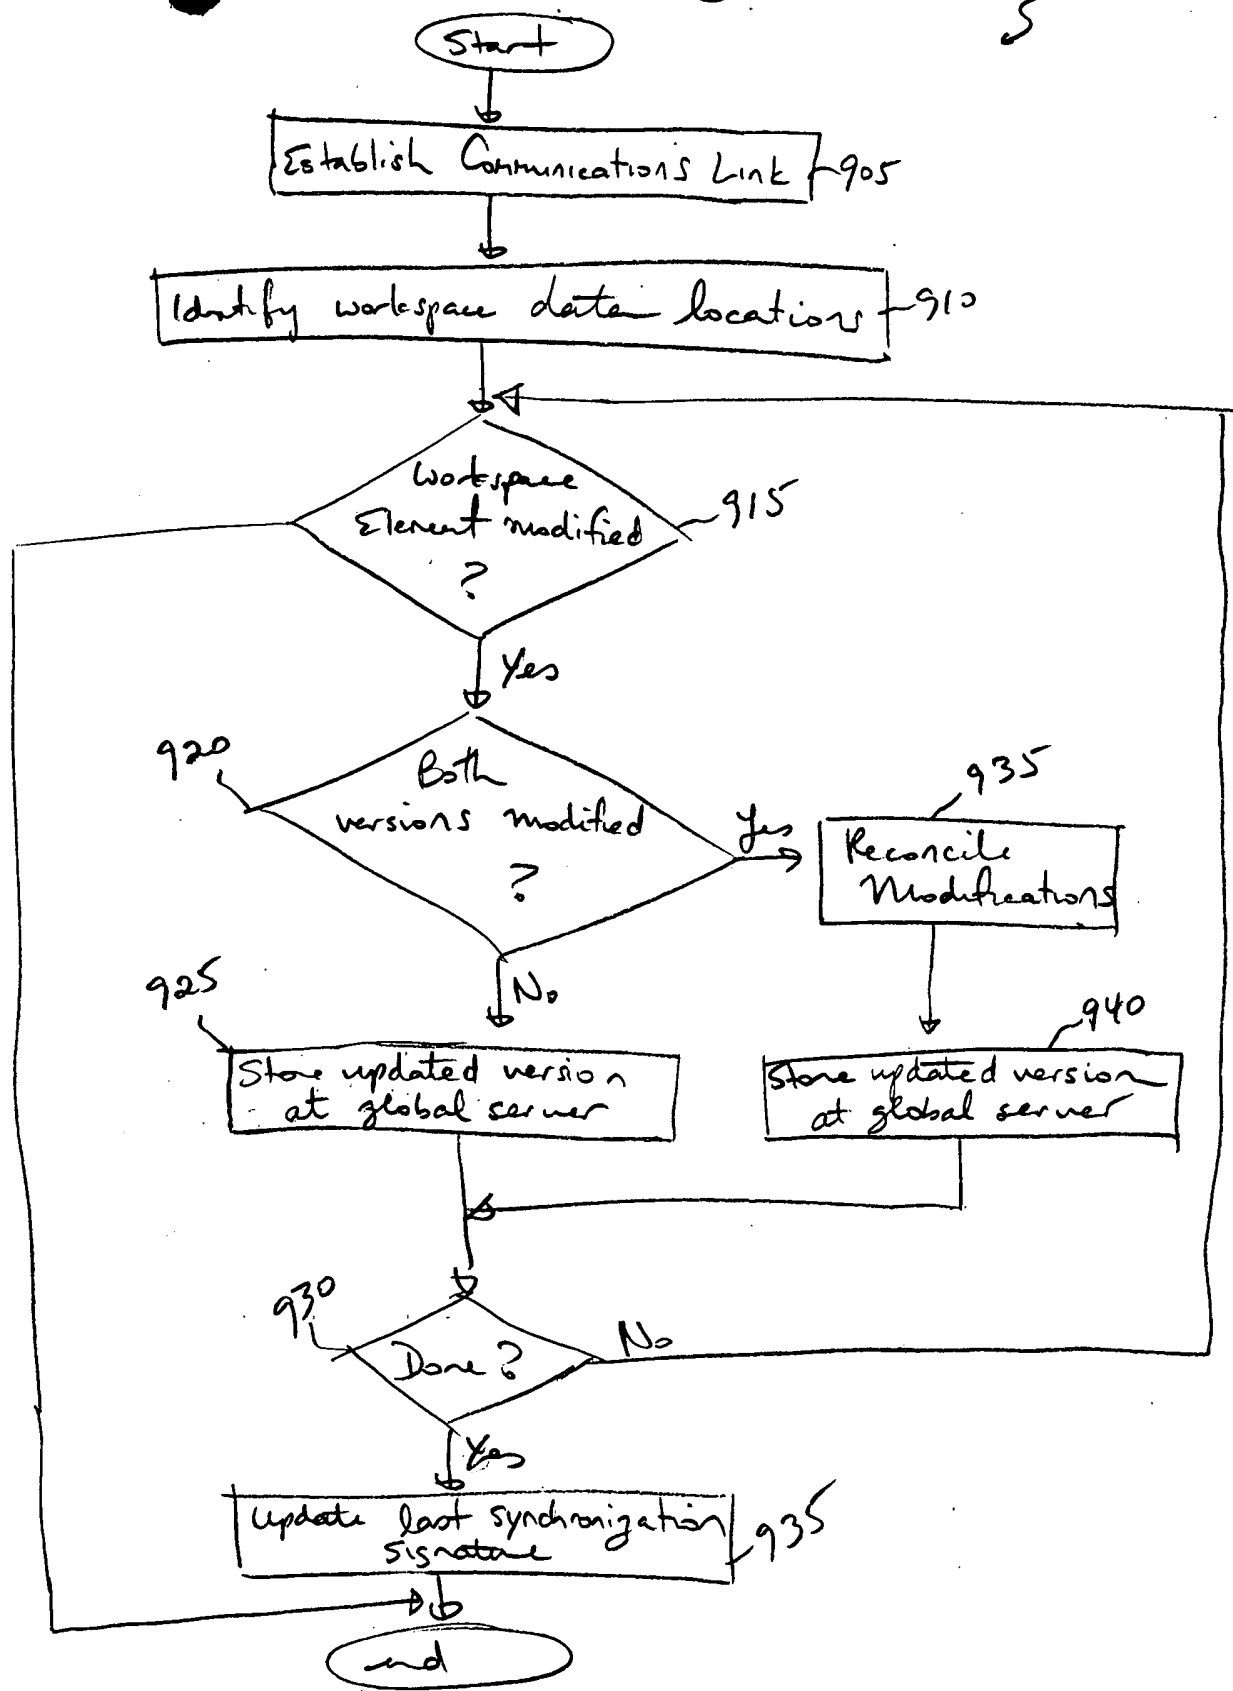 Start
Establish Communications Link
905
Identify workspace data locations
910
Workspace
Element modified
?
915
Yes
920
Both
versions modified
?
Yes
935
Reconcile
Modifications
No
925
Store updated version
at global server
940
Store updated version
at global server
930
Done?
No
Yes
Update last synchronization
signature
935
end